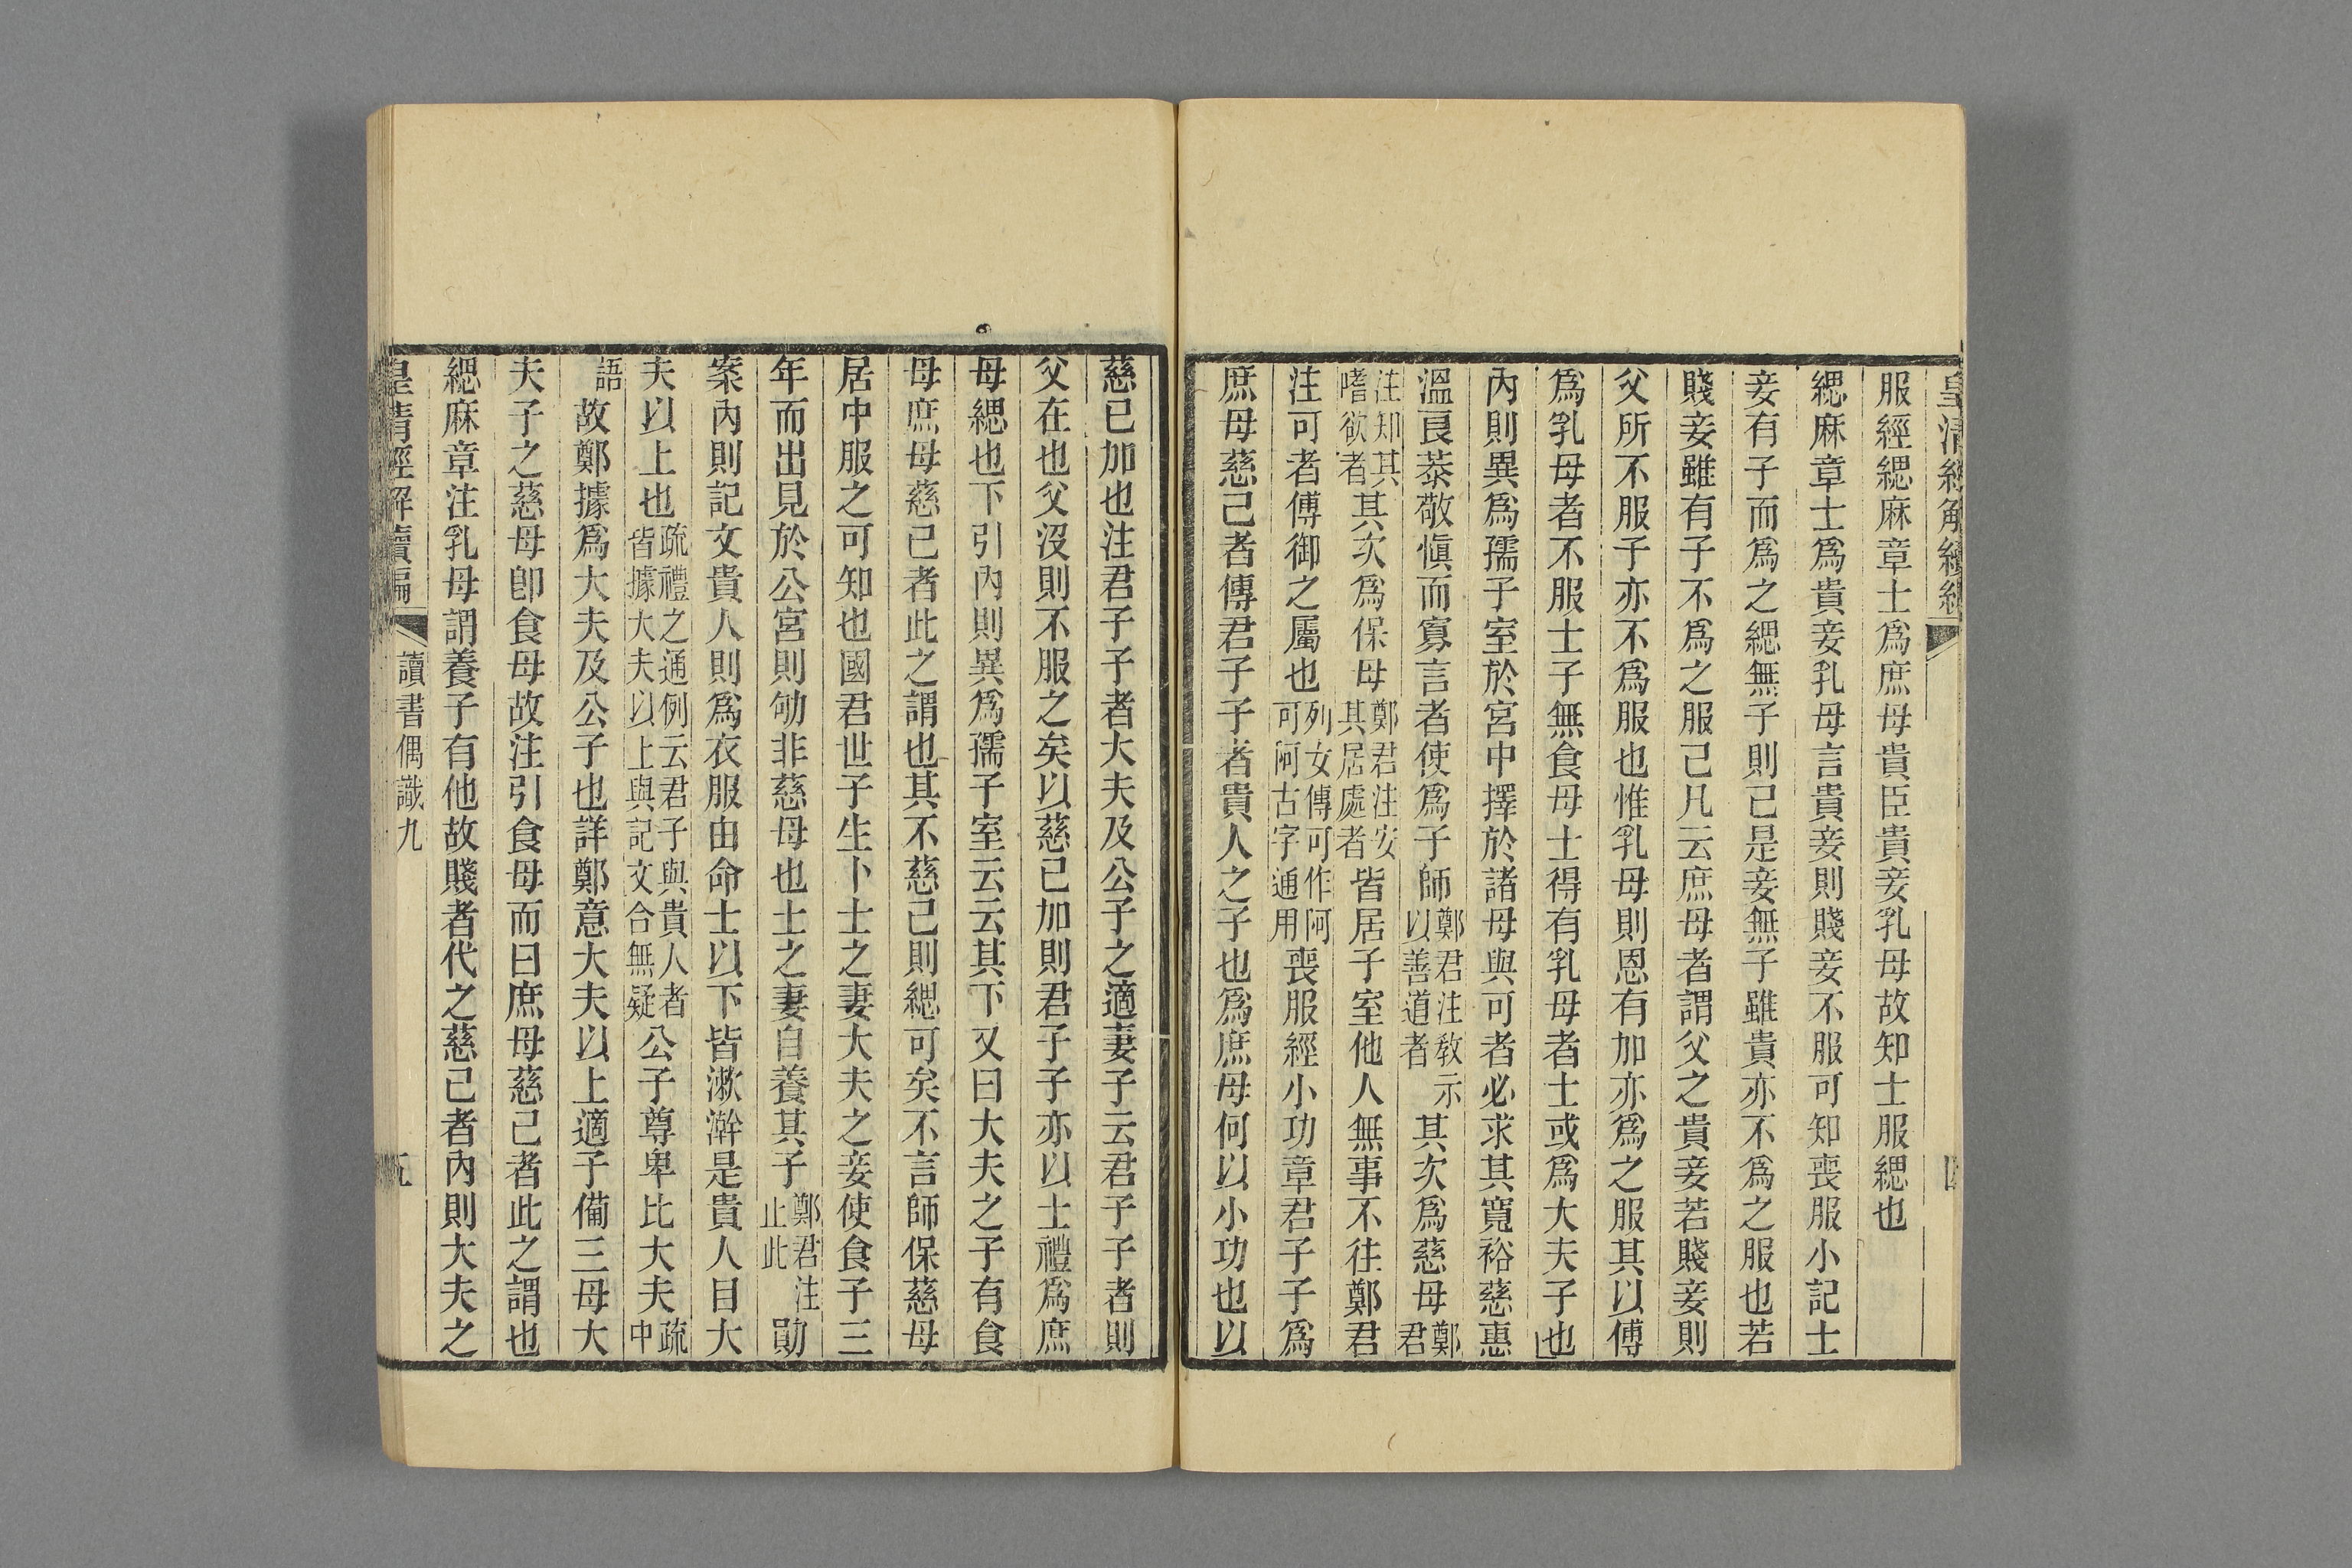 服經緦麻章士爲庶母貴臣貴妾乳母故知士服緦也
緦麻章士爲貴妾乳母言貴妾則賤妾不服可知喪服小記士
妾有子而爲之緦無子則已是妾無子雖貴亦不爲之服也若
賤妾雖有子不爲之服己凡云庶母者謂父之貴妾若賤妾則
父所不服子亦不爲服也惟乳母則恩有加亦爲之服其以傅
爲乳母者不服士子無食母士得有乳母者士或爲大夫子也
內則異爲孺子室於宮中擇於諸母與可者必求其寬裕慈惠
溫良恭敬愼而寡言者使爲子師鄭君注敎示以善道者其次爲慈母鄭君
注知其嗜欲者其次爲保母鄭君注安其居處者皆居子室他人無事不往鄭君
注可者傅御之屬也列女傳可作阿可阿古字通用喪服經小功章君子子爲
庶母慈己者傳君子子者貴人之子也爲庶母何以小功也以
慈己加也注君子子者大夫及公子之適妻子云君子子者則
父在也父沒則不服之矣以慈己加則君子子亦以士禮爲庶
母緦也下引內則異爲孺子室云云其下又曰大夫之子有食
母庶母慈己者此之謂也其不慈己則緦可矣不言師保慈母
居中服之可知也國君世子生卜士之妻大夫之妾使食子三
年而出見於公宮則劬非慈母也士之妻自養其子鄭君注止此勛
案內則記文貴人則爲衣服由命士以下皆漱澣是貴人目大
夫以上也疏禮之通例云君子與貴人者皆據大夫以上與記文合無疑公子尊卑比大夫疏中
語故鄭據爲大夫及公子也詳鄭意大夫以上適子備三母大
夫子之慈母卽食母故注引食母而曰庶母慈己者此之謂也
緦麻章注乳母謂養子有他故賤者代之慈己者內則大夫之
皇淸經解續編
讀書偶識九